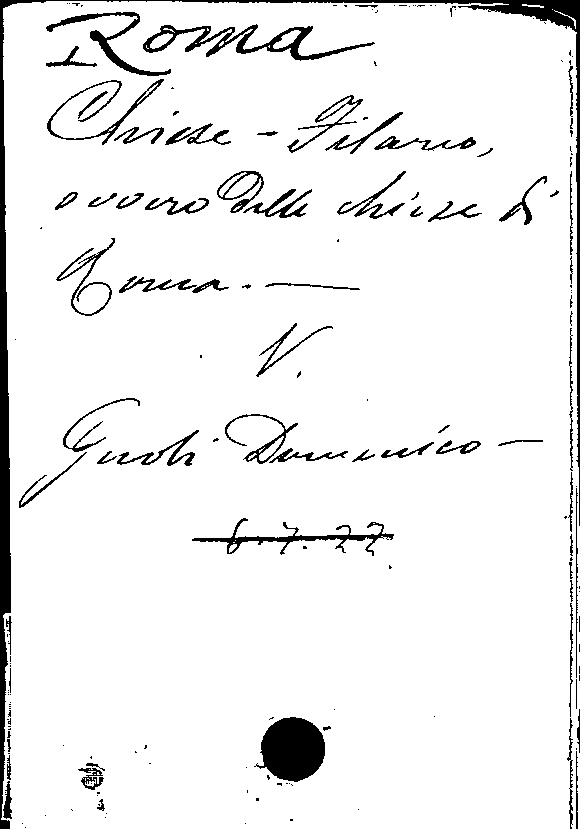 Roma
Chiese - Filario,
ovvero delle chiese di
Roma. —
V.
Gnoli Domenico —
6.7.22